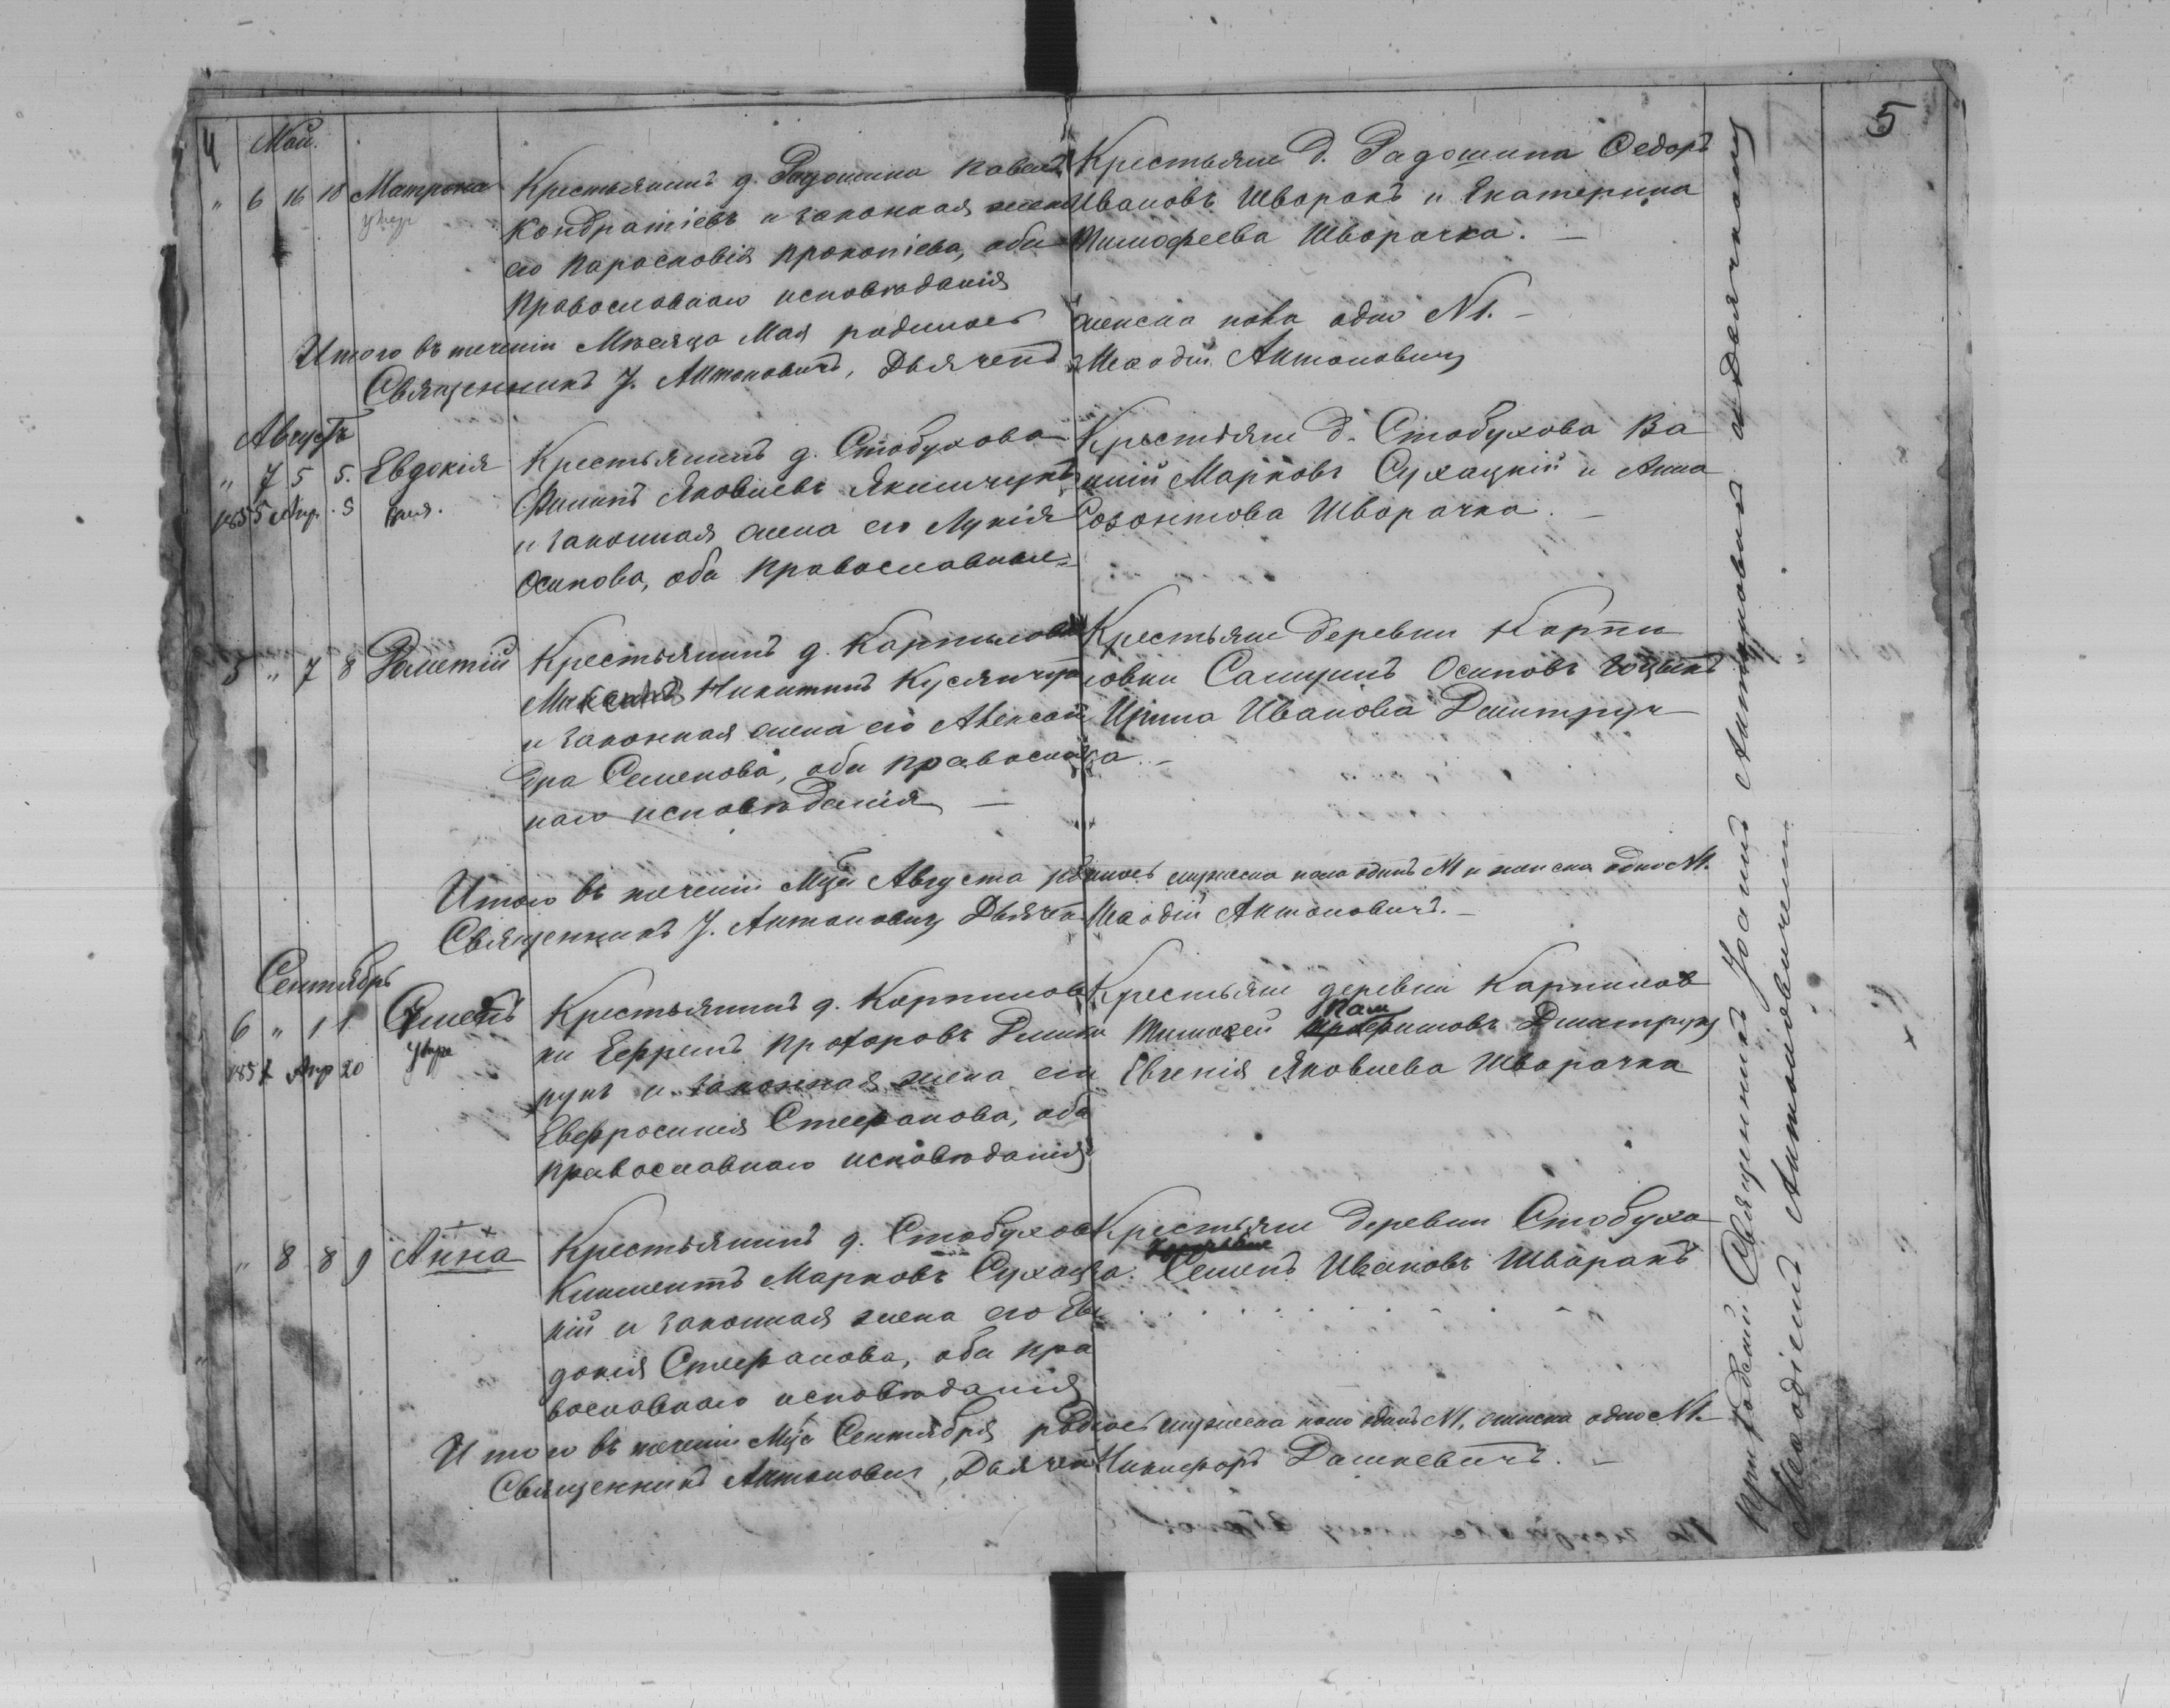 4
5
Май.
" 6 16 18 Матрона
умер
Крестьянинъ д. Радошина Павелъ
Кондратіевъ и законная жена
его Парасковія Прокопіева, оба
православнаго исповѣданія
Крестьяне д. Радошина Федоръ
Ивановъ Шворакъ и Екатерина
Тимофеева Шворачка. —
Итого въ теченіи Мѣсяца Мая родилось женска пола одно N 1. —
Священникъ І. Антоновичъ, Дьячекъ Меѳодій Антоновичъ
Августъ
" 7 5 5. Евдокія
1855 Апр. 5
Крестьянинъ д. Стобухова
Филипъ Яковлевъ Якимчукъ
и законная жена его Лукія
Осипова, оба православные
Крестьяне д. Стобухова Ва
силій Марковъ Сухацкій и Анна
Созонтова Шворачка. —
5 " 7 8
Крестьянинъ д. Карпиловки
Максимъ Никитинъ
и законная жена его Алексан
дра Семенова, оба православ
наго исповѣданія —
Крестьяне деревни Карпи
ловки Осиповъ
Ирина Иванова Дмитруч
ка. —
Итого въ теченіи Мца Августа родилось мужеска пола одинъ N1 и женска одно N1.
Священникъ І. Антоновичъ Дьячекъ Меѳодій Антоновичъ. —
Сентябрь
6 " 1 1. Семенъ
умре
185 Апр 20
Крестьянинъ д. Карпилов
ки Ефремъ Прохоровъ Дмит
рукъ и законная жена его
Евфросинія Стефанова, оба
православнаго исповѣданія
Крестьяне деревни Карпилов
Тимофей Дмитрукъ
Евгенія Яковлева Шворачка
" 8 8 9 Анна
Крестьянинъ д. Стобухов
Климентъ Марковъ Сухац
кій и законная жена его Ев
докія Стефанова, оба пра
вославнаго исповѣданія
Крестьяне деревни Стобухо
ва. Семенъ Ивановъ Шворакъ
Итого въ теченіи Мца Сентября родилось мужеска пола одинъ N1, женска одно N1. —
Священникъ Антоновичъ, Дьячекъ Никифоръ Дашкевичъ. —
Священникъ Іоаннъ Антоновичъ
Меѳодіемъ Антоновичемъ